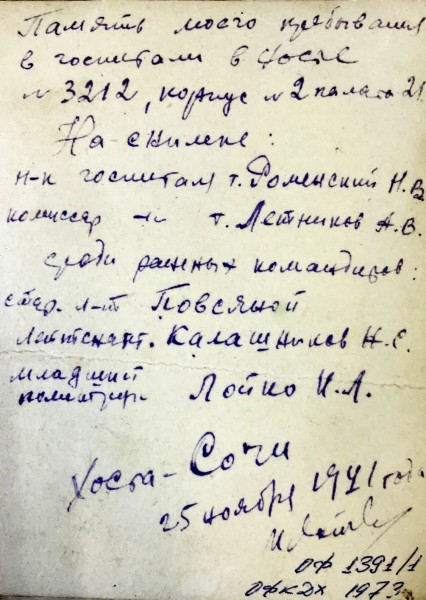 Память моего пребывания
в госпитали в Хосте
№ 3212, корпус № 2 палата 21.
На снимке:
н-к госпиталя т. Роменский Н.В.
комиссар -"- т. Летников А.В.
среди раженых командиров:
стар. л-нт Повсяной
Лейтенант. Калашников Н.Е.
младший
политрук Лойко И.Л.
Хоста - Сочи
25 ноября 1941 года
ОФ 1391/1
ОФКДХ 1973